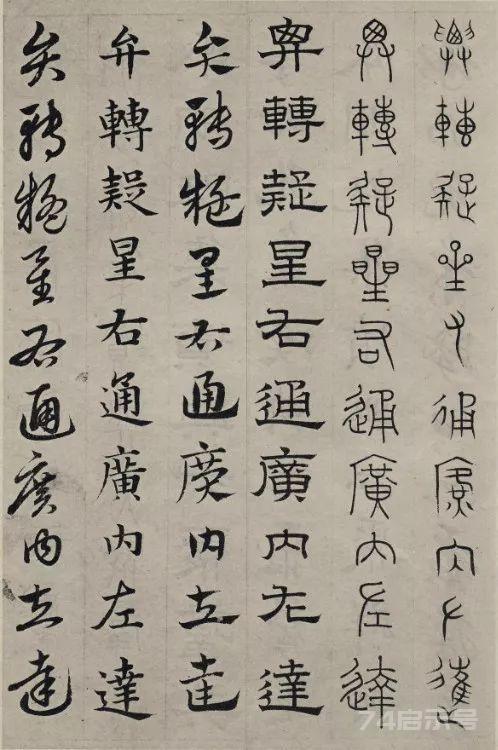 弁轉疑星右通廣內左達
弁轉疑星右通廣內左達
弁轉疑星右通廣內左達
弁轉疑星右通廣內左達
弁轉疑星右通廣內左達
弁轉疑星右通廣內左達
74启示号